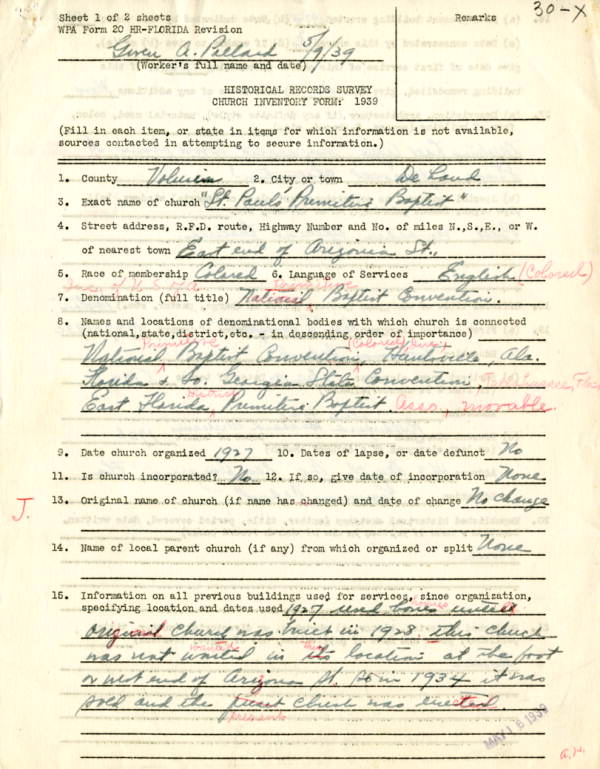 Sheet 1 of 2 sheets
Remarks
30-X
WPA Form 20 HR-FLORIDA Revision
Gwen A. Pillard 5/9/39
(Worker's full name and date)
HISTORICAL RECORDS SURVEY
CHURCH INVENTORY FORM: 1939
(Fill in each item, or state in items for which information is not available,
sources contacted in attempting to secure information.)
1. County Volusia 2. City or town De Land
3. Exact name of church "St. Paul's Primitive Baptist"
4. Street address, R.F.D. route, Highway Number and No. of miles N.,S.,E., or W.
of nearest town East end of Arizona St.,
5. Race of membership Colored 6. Language of Services English (Colored)
Inc. of U.S.A. Primitive
7. Denomination (full title) National Baptist Convention.
8. Names and locations of denominational bodies with which church is connected
(national,state,district,etc. - in descending order of importance)
Primitive (Colored)
National Baptist Convention, Huntsville Ala.
Florida & So. Georgia State Convention, Tallahassee, Fla.
District
East Florida, Primitive Baptist Asso., movable.
9. Date church organized 1927 10. Dates of lapse, or date defunct No
11. Is church incorporated? No 12. If so, give date of incorporation None
13. Original name of church (if name has changed) and date of change No Change
J.
14. Name of local parent church (if any) from which organized or split None
15. Information on all previous buildings used for services, since organization,
specifying location and dates used 1927 used homes until
original church was built in 1928 this church
wanted this
was not wanted in its location at the foot
or west end of Arizona St. so in 1934 it was
sold and the church was erected.
present
MAY 18 1939